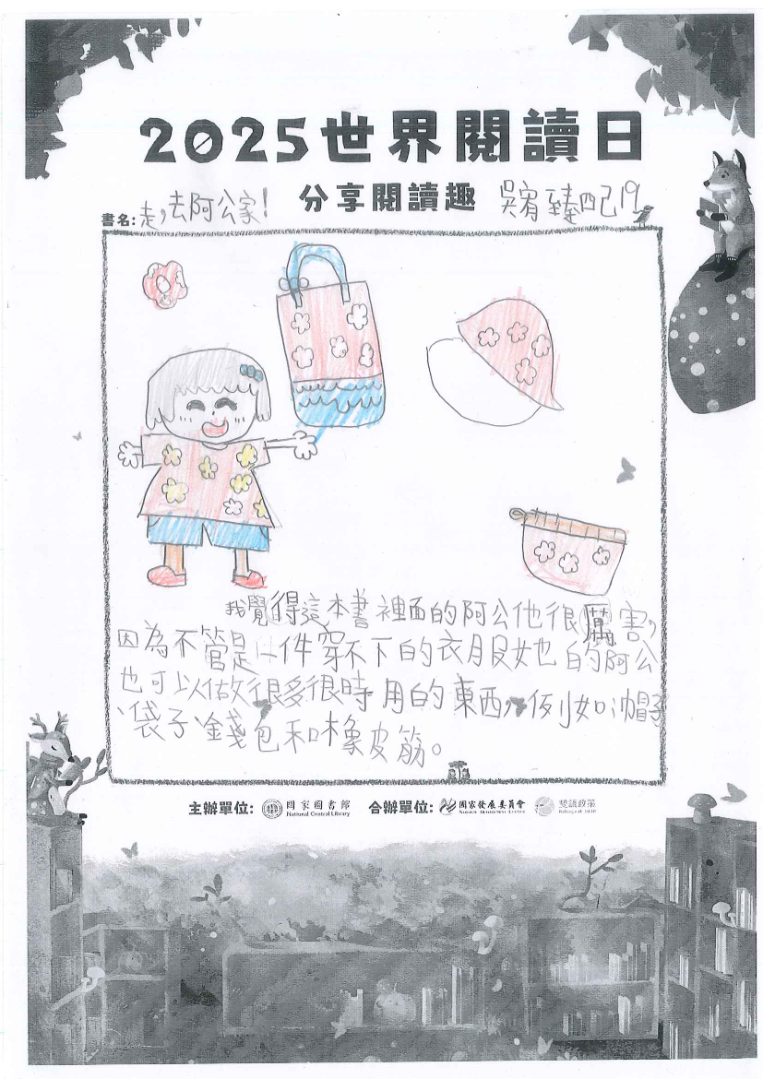 2025世界閱讀日
分享閱讀趣
書名:走,去阿公家!
吳宥臻四己19
我覺得這本書裡面的阿公他很厲害,
因為不管是一件穿不下的衣服她的阿公
也可以做很多很時用的東西,例如:帽子
、袋子、錢包和橡皮筋。
主辦單位: 國家圖書館 National Central Library 合辦單位: 國家發展委員會 National Development Council 雙語政策